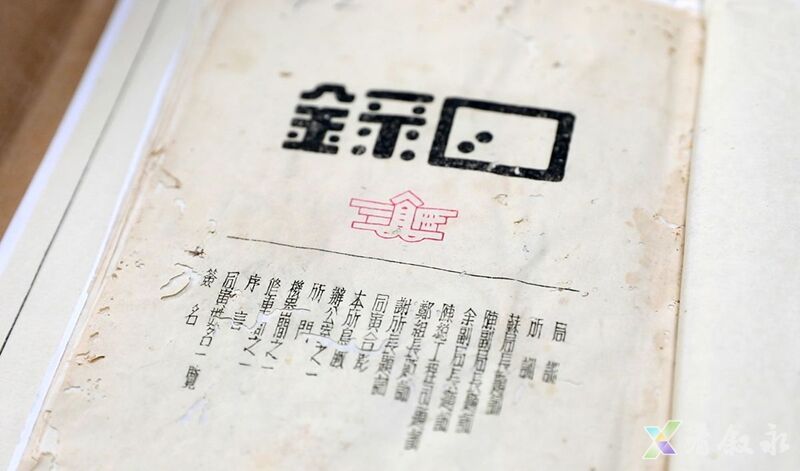 目錄
蘇局長題詞
陳副局長題詞
余副局長題詞
陳總工程司題字
鄭組長題詞
謝所長題詞
同寅合影
本所鳥瞰
辦公室之一
所門
機器間之一
修車間之一
序言
同寅姓名一覽
簽名
看叙永